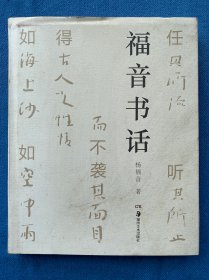 福音书话
杨福音 著
湖南美术出版社
任其所治 听其所止
得古人之性情 而不袭其面目
如海上沙 如空中雨